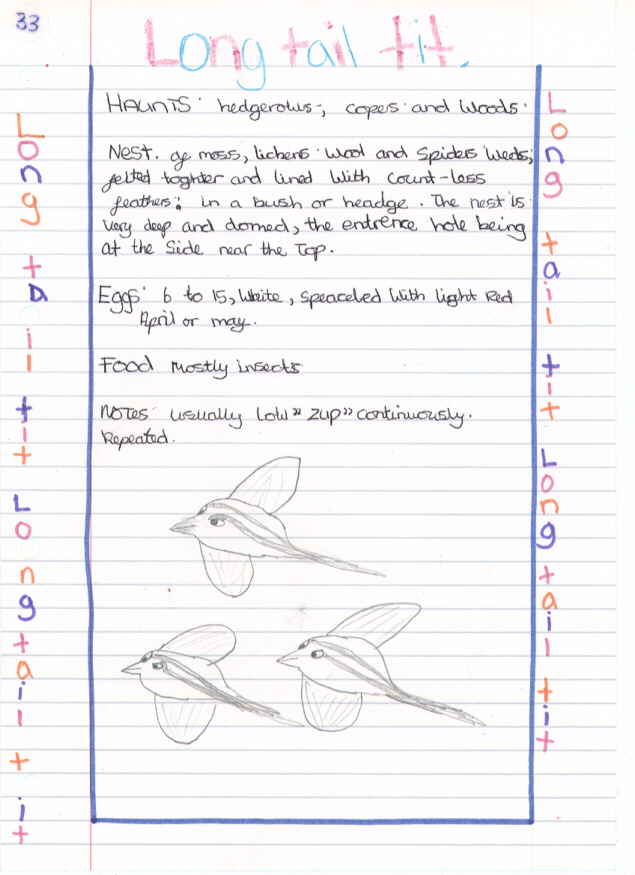 33
Long tail tit.
HAUNTS: hedgerows-, copes and Woods.
Nest. of moss, lichens wool and Spiders Webs;
felted toghter and lined with count-less
feathers; in a bush or headge. The nest is
very deep and domed, the entrence hole being
at the Side near the Top.
Eggs: 6 to 15, White, Speaceled With light Red
April or may.
Food mostly insects
NOTES usually Low " zup " continuously.
Repeated.
Long tail tit Long tail tit
Long tail tit Long tail tit